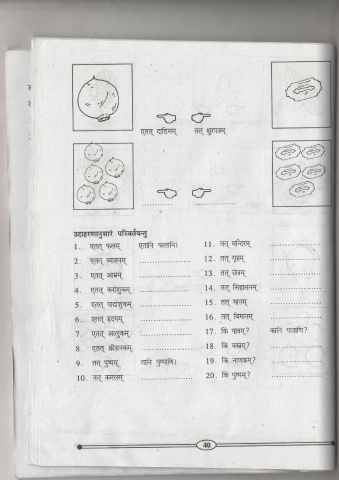 एतत् दाडिमम् तत् क्षुरपत्रम्
उदाहरणानुसारं परिवर्तयन्तु
1. एतत् फलम् एतानि फलानि। 11. तत् मन्दिरम्
2. एतत् व्यजनम् 12. तत् गृहम्
3. एतत् आम्रम् 13. तत् छत्रम्
4. एतत् करांशुकम् 14. तत् सिंहासनम्
5. एतत् पादांशुकम् 15. तत् यानम्
6. एतत् हृदयम् 16. तत् विमानम्
7. एतत् आलुकम् 17. किं पात्रम्? कानि पात्राणि?
8. एतत् क्रीडनकम् 18. किं वस्त्रम्?
9. तत् पुष्पम् तानि पुष्पाणि। 19. किं नाणकम्?
10. तत् कमलम् 20. किं पुष्पम्?
40